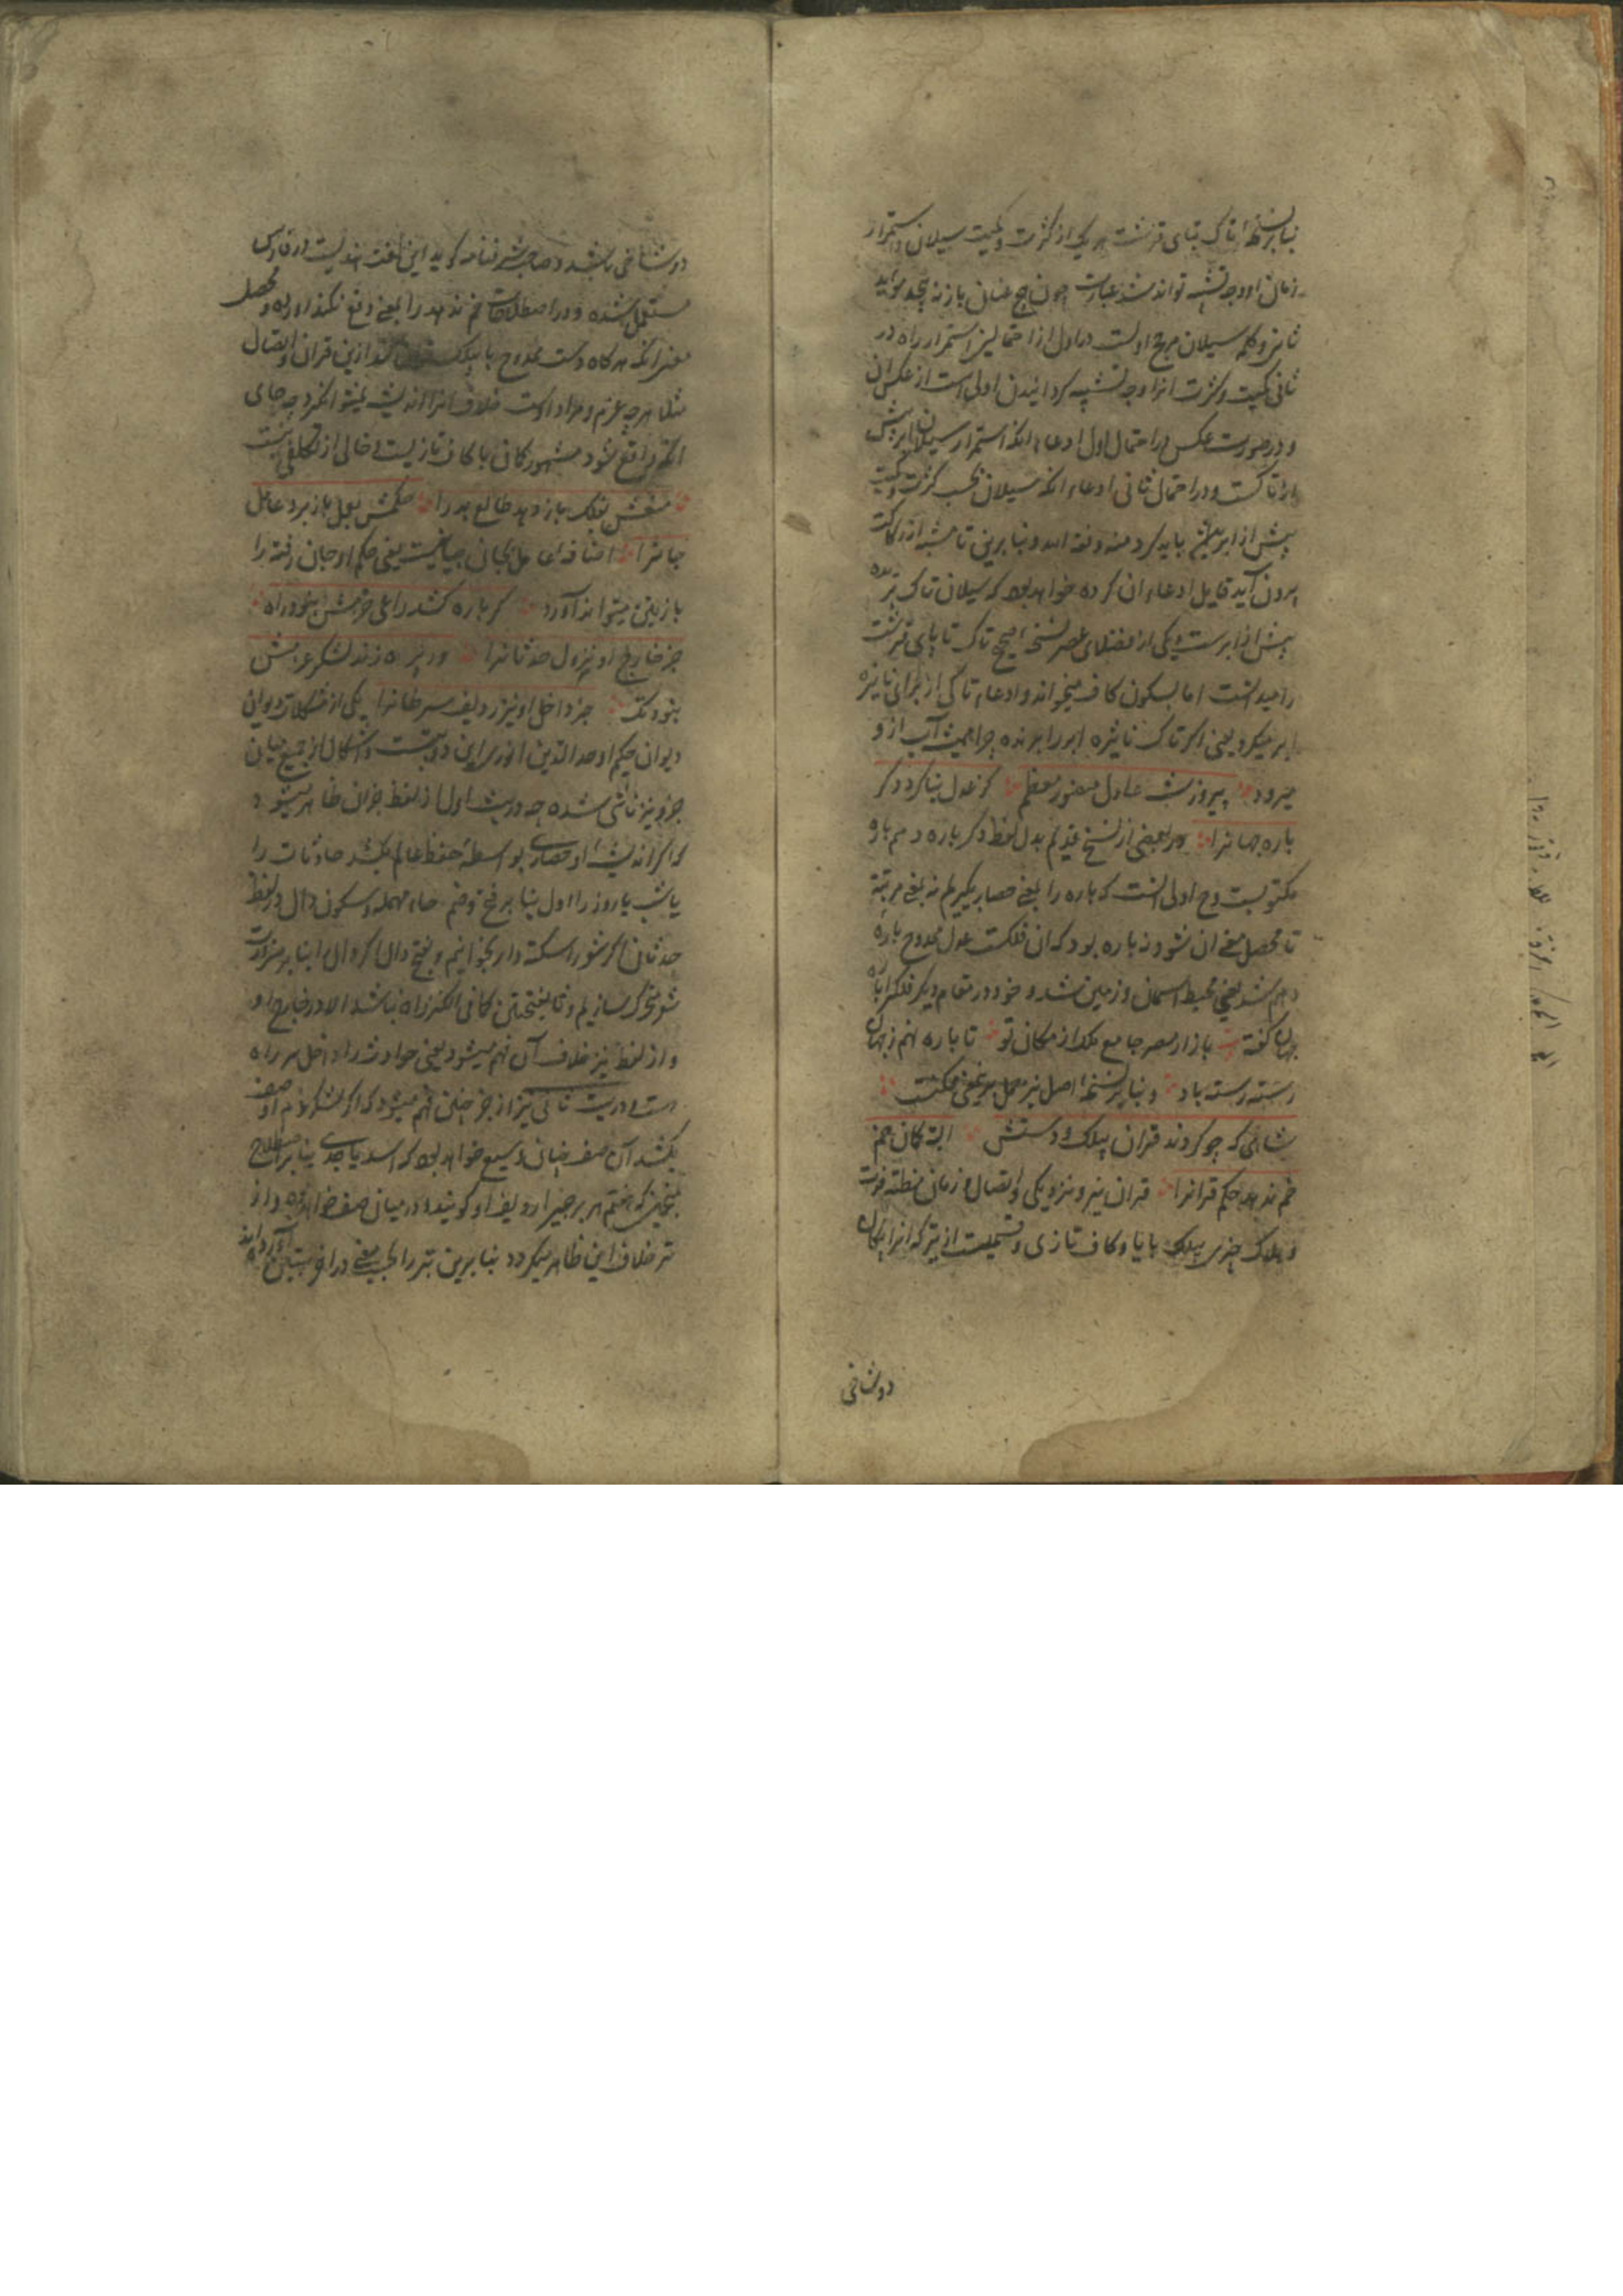 بنابر نسخهٔ تاک بتای قرشت هر یک از کثرت و کمیت سیلان و استمرار
زمان او وجه تشبیه تواند شد عبارت
ثانی و کلمه سیلان مرجح اولست و اول از احتمالین استمرار راه در
ثانی کمیت و کثرت انرا وجه تشبیه کردانیدن اولی است از عکس ان
و در صورت عکس در احتمال اول ادعاء انکه استمرار سیلان ابر بیش
از تاکست و در احتمال ثانی ادعاء انکه سیلان بحسب کثرت و کمیت
بیش از ابر باید کرد و بنابرین تا مشبه از رکاکت
بیرون آید قایل ادعاء ان کرده خواهد بود که سیلان تاک بریده
بیش از ابرست و یکی از فضلای عصر نسخهٔ اصح تاک تا بای قرشت
را میدانست اما بسکون کاف میخواند و ادعاء تاکی از برای نایژه
ابر میکرد یعنی اکر تاک نایژه ابر را بریده چرا همیشه آب از و
میرود پیروز شه عادل منصور معظم کز عدل بنا کرد دکر
باره جهانرا و در بعضی از نسخ قدیم بدل لفظ دکر باره دهم باره
مکتوبست و ح اولی انست که باره را بمعنی حصار بکیریم نه بمعنی مرتبه
تا محصل معنی ان شود نه باره بود که ان فلکست عدل ممدوح باره
دهم شد یعنی محیط اسمان و زمین شد و خود در مقام دیکر فلکرا باره
جهان کفته بازار مصر جامع ملک از مکان تو تا باره نهم ز جهان
رسته رسته باد و بنابر نسخهٔ اصل نیز حمل بر معنی ممکنست
شاهی که چو کردند قران بیلک و دستش البته کمان خم
خم ندهد حکم قرانرا قران نیر و نزدیکی و اتصال و زمان مظنه فرت
و هلاک چیزی بیلک با یا و کاف تازی و قسمیست از تیر که انرا پیکان
دوشاخی
دوشاخی باشد و صاحب شرفنامه کوید این لغت هندیست در فارسی
مستعمل شده و در اصطلاحات خم ندهد را بمعنی دفع نکند اورده و محصل
معنی انکه هرکاه دست ممدوح با بیلک ازین قران و اتصال
مثلا هر چه عزم و مراد اوست خلاف انرا اندیشه نمیتواند کرد چه جای
انکه واقع شود مشهور کاف با کاف تازیست و خالی از تکلفی نیست
منعش بفلک باز دهد طالع بد را حکمش بعمل باز برد عامل
جانرا اضافه عامل بجان بیانیست یعنی حکم او جان رفته را
باز بتن میتواند آورد کر باره کشد راعی حزمش نبود راه
جز خارج او نیز نزول حدثانرا ور پره زند لشکر عزمش
نبود تک جز داخل او نیز ردیف سرطانرا یکی از مشکلات دیوانی
دیوان حکیم اوحد الدین انوری این دو بیتست و اشکال از جمیع میان
جز و نیز ناشی شده چه در بیت اول از لفظ جز ان ظاهر میشود
که اکر اندیشهٔ او حصاری بواسطهٔ حفظ عالم بکشد حادثات را
یا شب یا روز را اول بنابر فتح و ضم حاء مهمله و سکون دال در لفظ
حدثان اکر شعور را سکته دار بخوانیم و بفتح دال اکر دال را بنابر ضرورت
شعر متحرک سازیم و ثا بفتحتین کافی الکنز راه نباشد الا در خارج او
و از لفظ نیز خلاف آن فهم میشود یعنی حوادث را داخل هم راه
است و در بیت ثانی نیز از جز چنین فهم میشود که اکر لشکر عزم او صف
بکشد آن صف چنان وسیع خواهد بود که اسد یا جدی بنابر اصطلاح
منجمین که هفتم هر برجی را ردیف او کویند در میان صف خواهد بود و از
نیز خلاف این ظاهر میکردد بنابرین نیز را بحسب معنی در اخر بیتین آورده اند